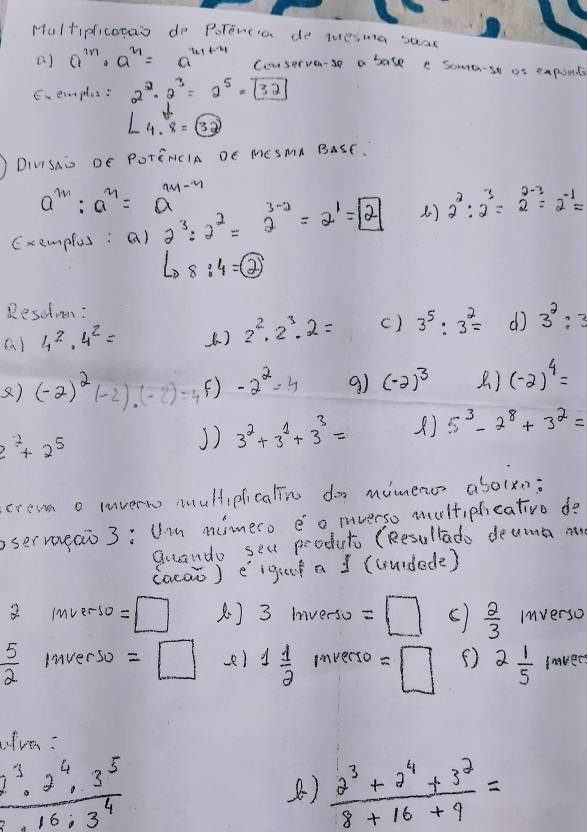 Multiplicação de Potência de mesma base
a) a^m . a^n = a^(m+n) Conserva-se a base e soma-se os expoent
Exemplos: 2^2 . 2^3 = 2^5 = 32
4 . 8 = 32
) DIVISÃO DE POTÊNCIA DE MESMA BASE.
a^m : a^n = a^(m-n)
Exemplos: a) 2^3 : 2^2 = 2^(3-2) = 2^1 = 2 b) 2^2 : 2^3 = 2^(2-3) = 2^-1 =
8 : 4 = 2
Resolver:
a) 4^2 . 4^2 = b) 2^2 . 2^3 . 2 = c) 3^5 : 3^2 = d) 3^2 : 3
e) (-2)^2 (-2).(-2)=4 f) -2^2 -4 g) (-2)^3 h) (-2)^4 =
2^2 + 2^5 j) 3^2 + 3^1 + 3^3 = l) 5^3 - 2^8 + 3^2 =
screva o inverso multiplicativo dos números abaixo:
bservação 3: Um número é o inverso multiplicativo de
quando seu produto (Resultado de uma mu
cação) é igual a 1 (unidade)
2 inverso = b) 3 inverso = c) 2/3 inverso
5/2 inverso = e) 1 1/2 inverso = f) 2 1/5 inver
olva:
2^3 . 2^4 . 3^5 b) 2^3 + 2^4 + 3^2 =
. 16 : 3^4 8 + 16 + 9